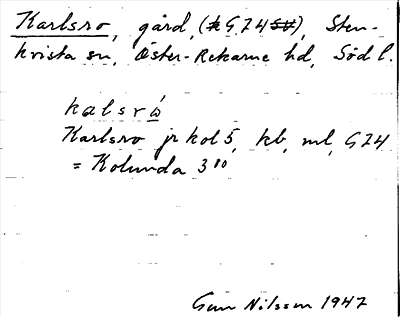 Karlsro, gård, (G74), Sten-
kvista sn, Öster-Rekarne hd, Södl.
kalsró
Karlsro jr kol 5, kb, ml, G74
= Kolunda 3¹⁰
Gun Nilsson 1947